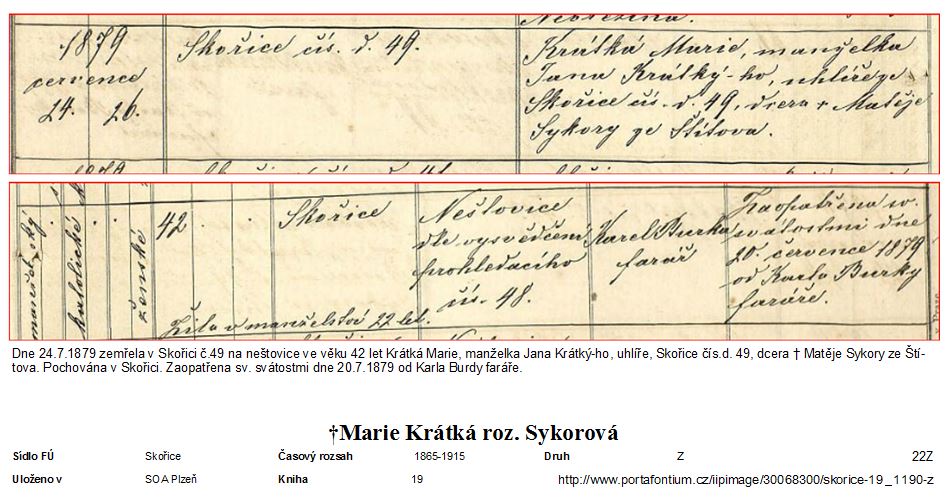 Neołežina.
1879
července
24. 26.
Skořice čís. d. 49.
Krátká Marie, manželka
Jana Krátký-ho, uhlíře ze
Skořice čís. d. 49, dcera † Matěje
Sykory ze Štítova.
manželský
katolické
ženské
42
Skořice
Neštovice
dle vysvědčení
prohledacího
čís. 48.
Žila v manželství 22 let.
Karel Burka
farář
Zaopatřena sv.
svátostmi dne
20. července 1879
od Karla Burky
faráře.
Dne 24.7.1879 zemřela v Skořici č.49 na neštovice ve věku 42 let Krátká Marie, manželka Jana Krátký-ho, uhlíře, Skořice čís.d. 49, dcera † Matěje Sykory ze Ští-
tova. Pochována v Skořici. Zaopatřena sv. svátostmi dne 20.7.1879 od Karla Burdy faráře.
†Marie Krátká roz. Sykorová
Sídlo FÚ Skořice Časový rozsah 1865-1915 Druh Z 22Z
Uloženo v SOA Plzeň Kniha 19 http://www.portafontium.cz/iipimage/30068300/skorice-19_1190-z